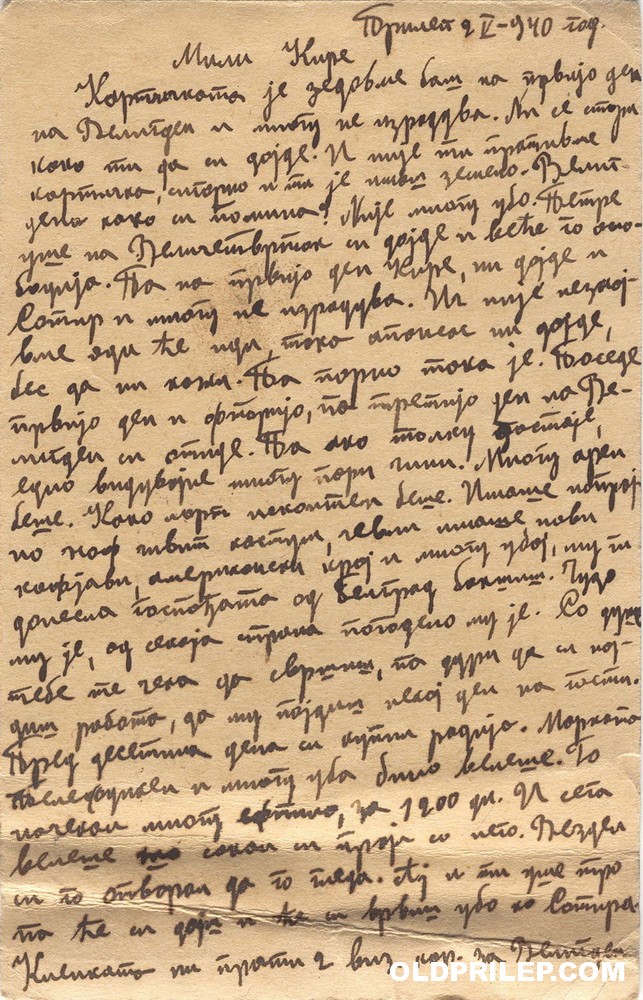 Прилеп 2 V-940 год.
Мили Кире
Картичката је зедовме баш на првијо ден
на Велигден и многу не израдува. Ни се стори
како ти да си дојде. И није ти пративме
картичка, сигурно и ти је имаш земено. Велиг-
дено како си помина? Није многу убо. Петре
уше на Величетврток си дојде и веће го осло-
бодија. Па на првијо ден Кире, ни дојде и
Сотир и многу не израдува. И није незнај-
вме оди ће иди, тока апансас ни дојде,
бес да ни кажи. Па порно тока је. Поседе
првијо ден и фторијо, па третијо ден на Ве-
лигден си отиде. Па ако толку
едно видување многу пари чини. Многу арен
беше. Како лорт некоштен беше. Имаше
но каф костум, чевли имаше нови
кафјави, американски крој и многу убој, му ги
донесла госпоѓата од Белград бакшиш. Чудо
муз је, од секоја страна погодено му је. Со душа
тебе те чека да свршиш, па дури да си нај-
диш работа, да му појдиш некој ден на гости.
Пред десетина дена си купил радијо. Марката
Телефункен и многу убо било велеше. Го
начекал многу ефтино, за 1200 дн. И сета
велеше сакал си троја со него. Вездел
си го отворал да го гледа. Ај и ти уше тро
па ће си дојш и ће си врвиш убо ко Сотира.
Кицката ни прати 2 виз. кар. за Велигден
OLDPRILEP.COM